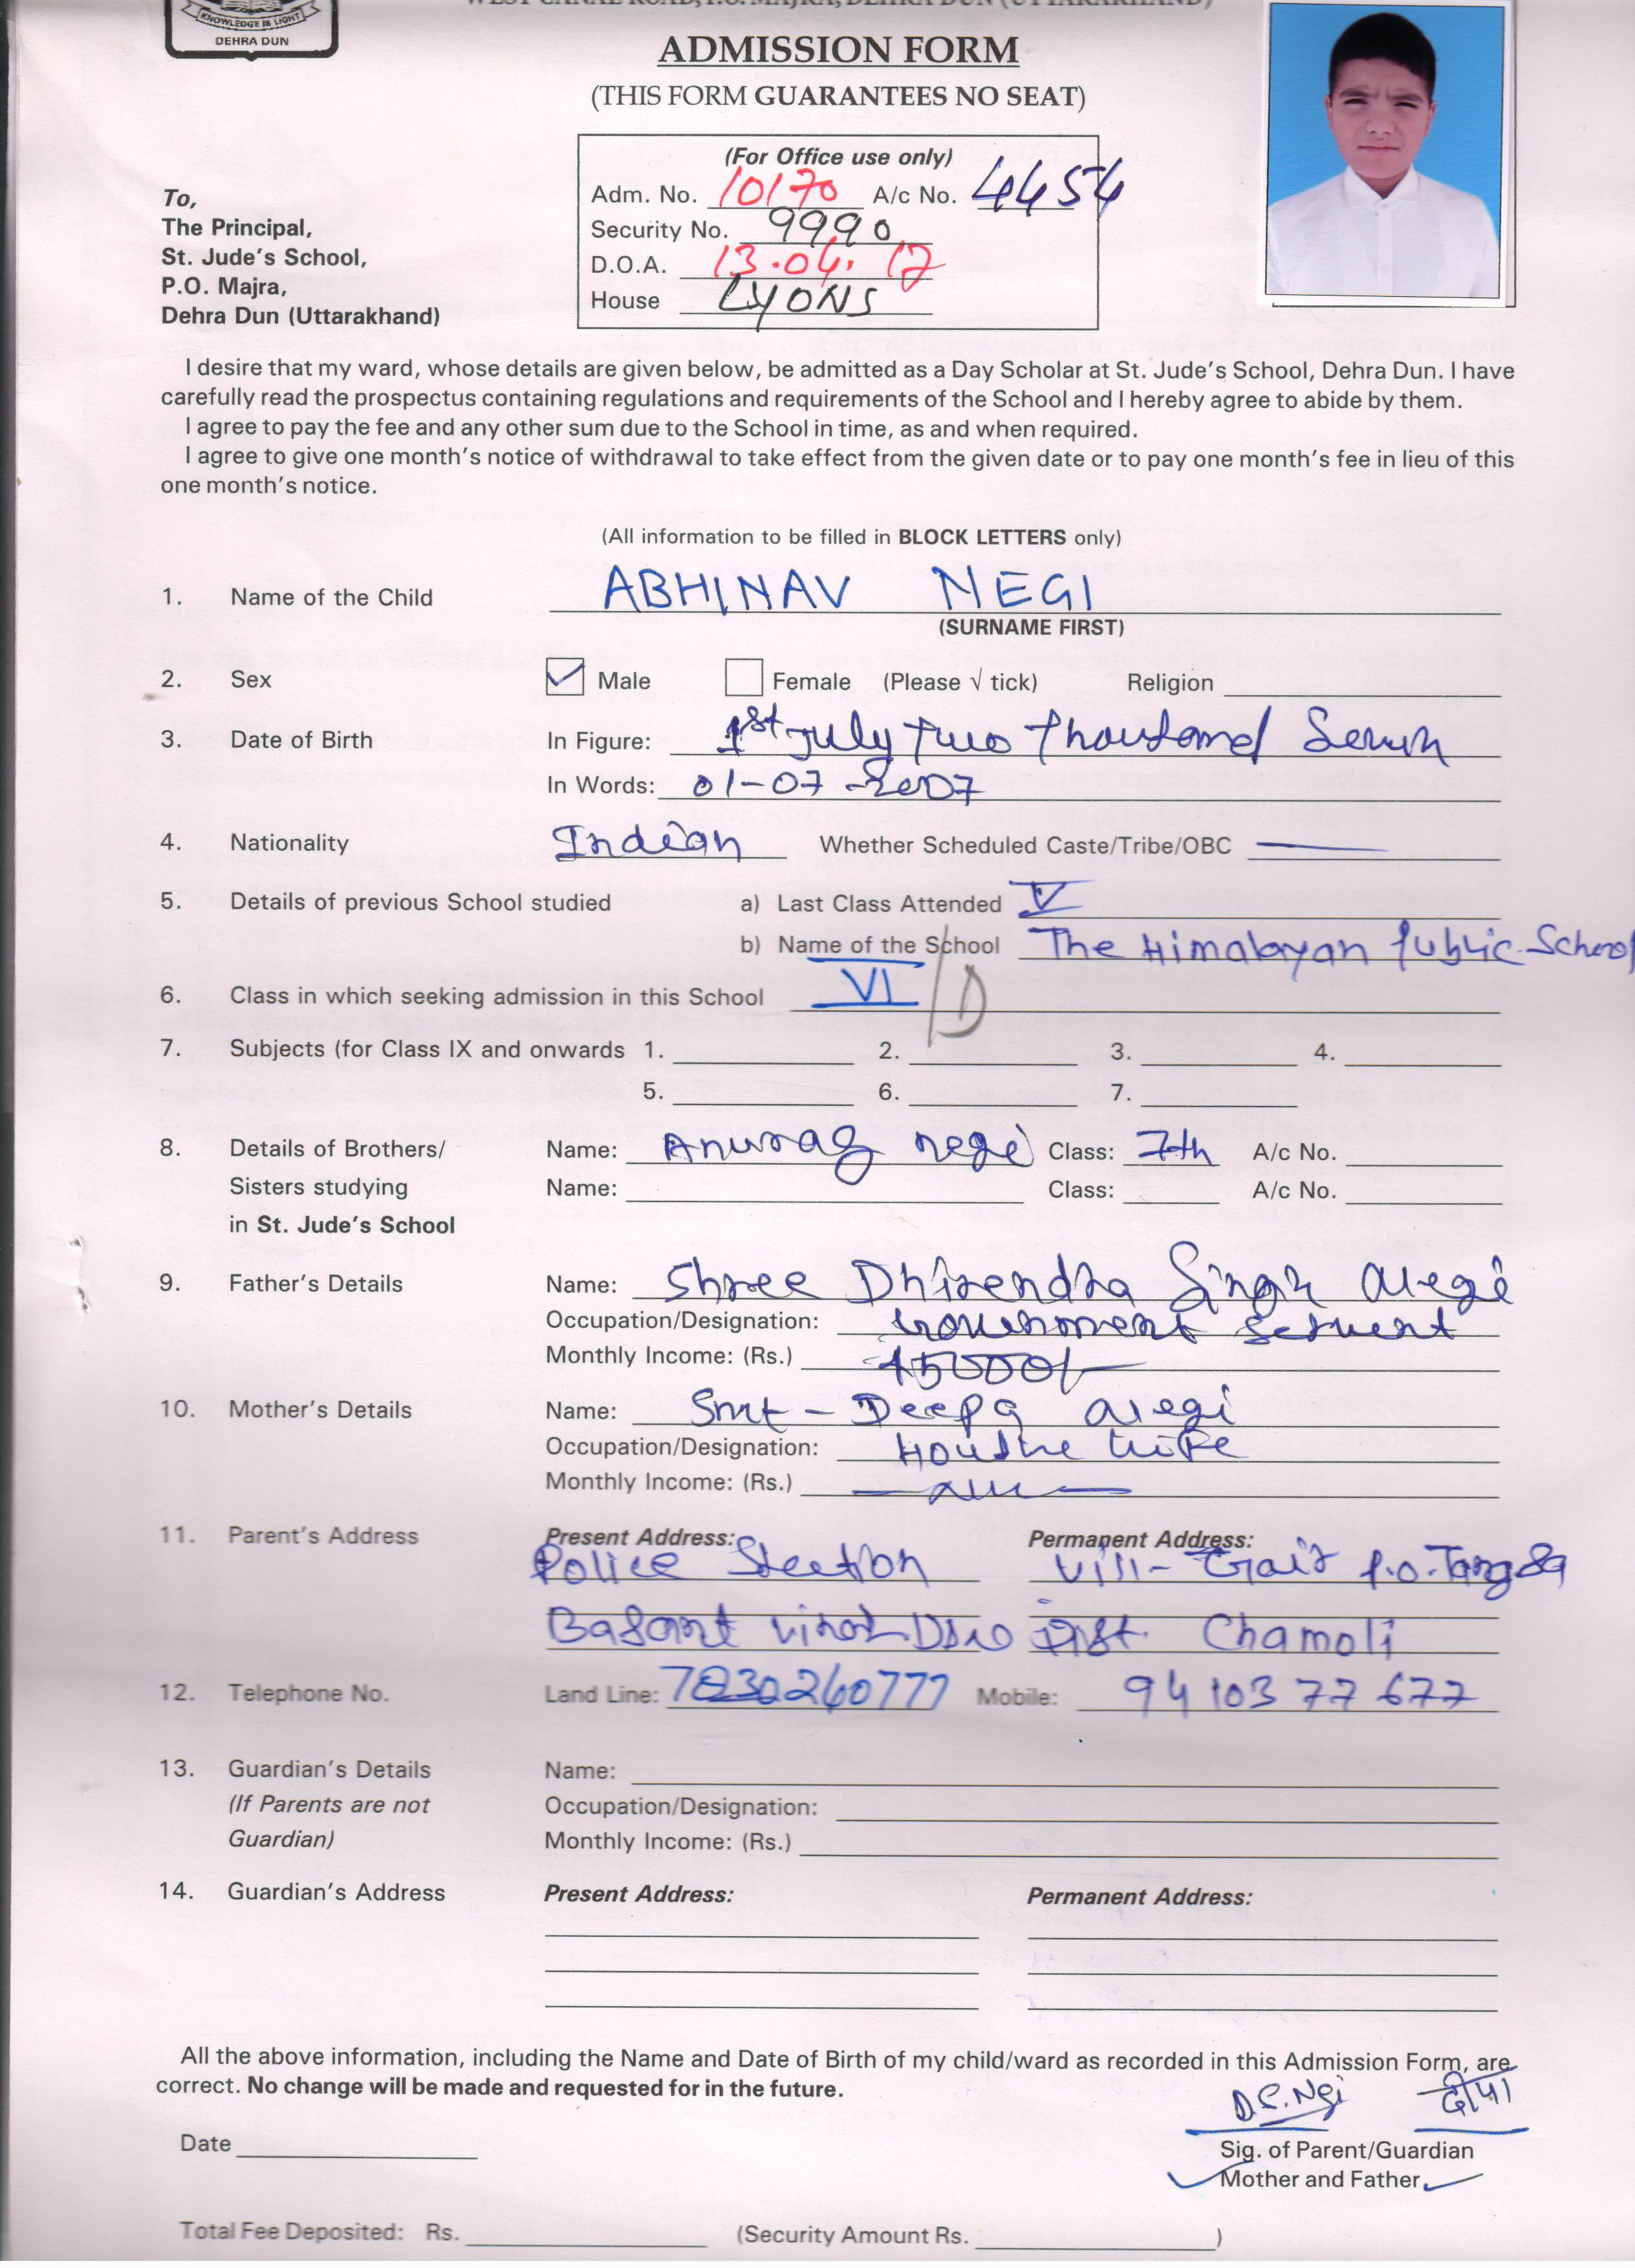 KNOWLEDGE IS LIGHT
DEHRA DUN
WEST CANAL ROAD, P.O. MAJRA, DEHRA DUN (UTTARAKHAND)
ADMISSION FORM
(THIS FORM GUARANTEES NO SEAT)
(For Office use only)
Adm. No. 10170 A/c No. 4454
Security No. 9990
D.O.A. 13.04.17
House LYONS
To,
The Principal,
St. Jude's School,
P.O. Majra,
Dehra Dun (Uttarakhand)
I desire that my ward, whose details are given below, be admitted as a Day Scholar at St. Jude's School, Dehra Dun. I have
carefully read the prospectus containing regulations and requirements of the School and I hereby agree to abide by them.
I agree to pay the fee and any other sum due to the School in time, as and when required.
I agree to give one month's notice of withdrawal to take effect from the given date or to pay one month's fee in lieu of this
one month's notice.
(All information to be filled in BLOCK LETTERS only)
1. Name of the Child ABHINAV NEGI
(SURNAME FIRST)
2. Sex Male Female (Please √ tick) Religion
3. Date of Birth In Figure: 1st July Two Thousand Seven
In Words: 01-07-2007
4. Nationality Indian Whether Scheduled Caste/Tribe/OBC —
5. Details of previous School studied a) Last Class Attended V
b) Name of the School The Himalayan Public School
6. Class in which seeking admission in this School VI/D
7. Subjects (for Class IX and onwards 1. 2. 3. 4.
5. 6. 7.
8. Details of Brothers/ Name: Anurag negi Class: 7th A/c No.
Sisters studying Name: Class: A/c No.
in St. Jude's School
9. Father's Details Name: Shree Dhirendra Singh Negi
Occupation/Designation: Government Servent
Monthly Income: (Rs.) 45000/-
10. Mother's Details Name: Smt - Deepa Negi
Occupation/Designation: House Wife
Monthly Income: (Rs.)
11. Parent's Address Present Address: Permanent Address:
Police Steetion Vill- Gair P.O. Tangsa
Basant vihar DDun Dist. Chamoli
12. Telephone No. Land Line: 7830260777 Mobile: 9410377677
13. Guardian's Details Name:
(If Parents are not Occupation/Designation:
Guardian) Monthly Income: (Rs.)
14. Guardian's Address Present Address: Permanent Address:
All the above information, including the Name and Date of Birth of my child/ward as recorded in this Admission Form, are
correct. No change will be made and requested for in the future.
D.S. Ngi दीपा
Date
Sig. of Parent/Guardian
Mother and Father
Total Fee Deposited: Rs. (Security Amount Rs. )